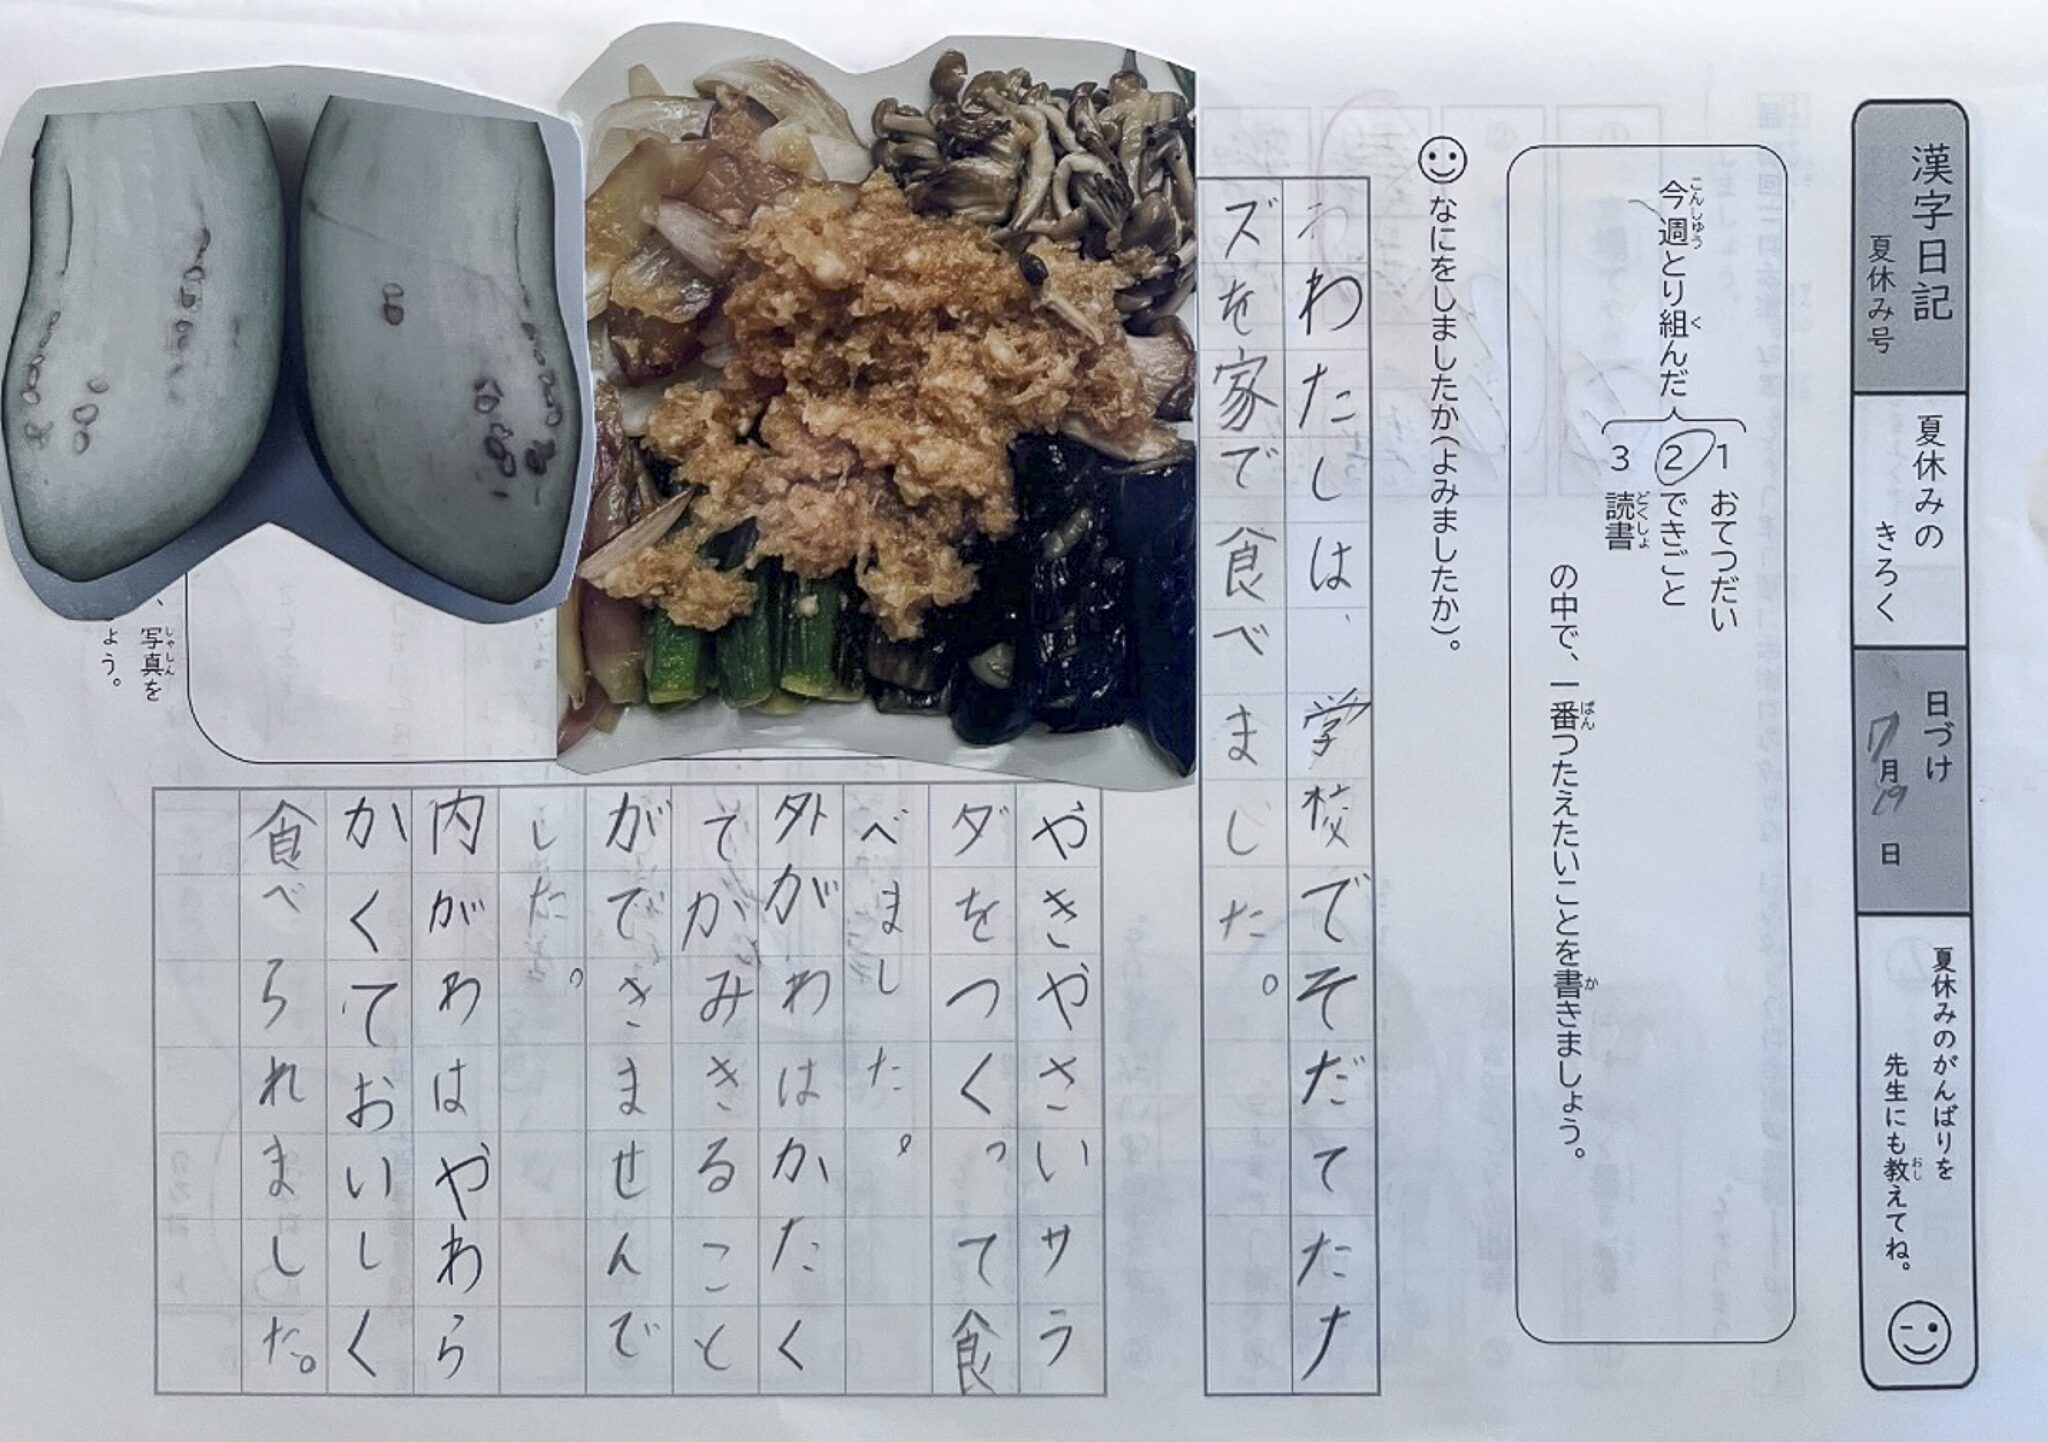 漢字日記
夏休み号
夏休みの
きろく
日づけ
7月19日
夏休みのがんばりを
先生にも教えてね。
おし
今週とり組んだ
こんしゅう
く
1 おてつだい
2 できごと
3 読書
どくしょ
の中で、一番つたえたいことを書きましょう。
ばん
か
なにをしましたか(よみましたか)。
わたしは、学校でそだてたナ
ズを家で食べました。
やきやさいサラ
ダをつくって食
べました。
外がわはかたく
てかみきること
ができませんで
した。
内がわはやわら
かくておいしく
食べられました。
、写真を
しゃしん
ょう。